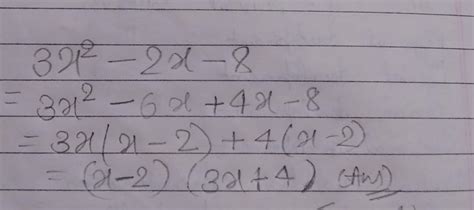 3x² - 2x - 8
= 3x² - 6x + 4x - 8
= 3x(x - 2) + 4(x - 2)
= (x-2) (3x+4) (Ans)